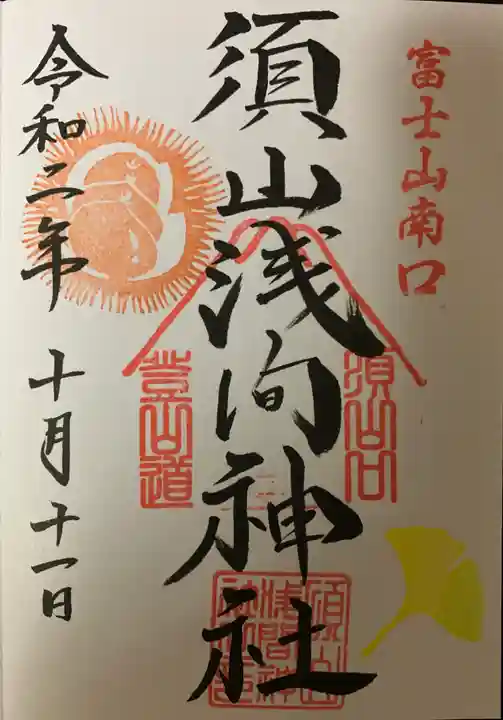 富士山南口
須山口
登山道
須山浅间神社
須山
浅間神
社
令和二年 十月十一日